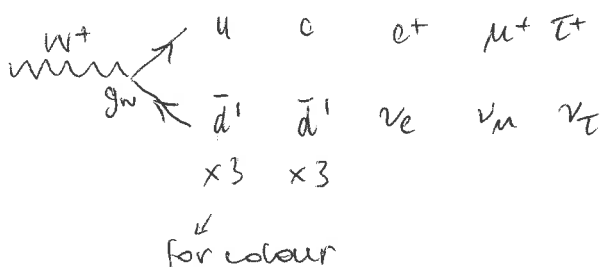 W⁺ u c e⁺ μ⁺ τ⁺
g_w d̄' d̄' ν_e ν_μ ν_τ
×3 ×3
for colour